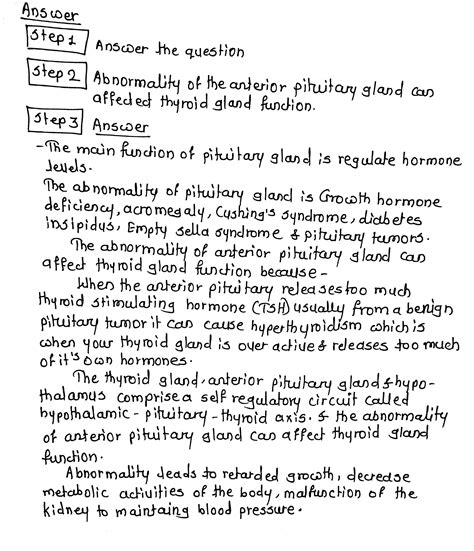 Answer
Step 1 Answer the question
Step 2 Abnormality of the anterior pituitary gland can
affected thyroid gland function.
Step 3 Answer
- The main function of pituitary gland is regulate hormone
levels.
The abnormality of pituitary gland is Growth hormone
deficiency, acromegaly, Cushing's syndrome, diabetes
insipidus, Empty sella syndrome & pituitary tumors.
The abnormality of anterior pituitary gland can
affect thyroid gland function because -
When the anterior pituitary releases too much
thyroid stimulating hormone (TSH) usually from a benign
pituitary tumor it can cause hyperthyroidism which is
when your thyroid gland is over active & releases too much
of it's own hormones.
The thyroid gland, anterior pituitary gland & hypo-
thalamus comprise a self regulatory circuit called
hypothalamic - pituitary - thyroid axis. & the abnormality
of anterior pituitary gland can affect thyroid gland
function.
Abnormality leads to retarded growth, decrease
metabolic activities of the body, malfunction of the
kidney to maintaing blood pressure.